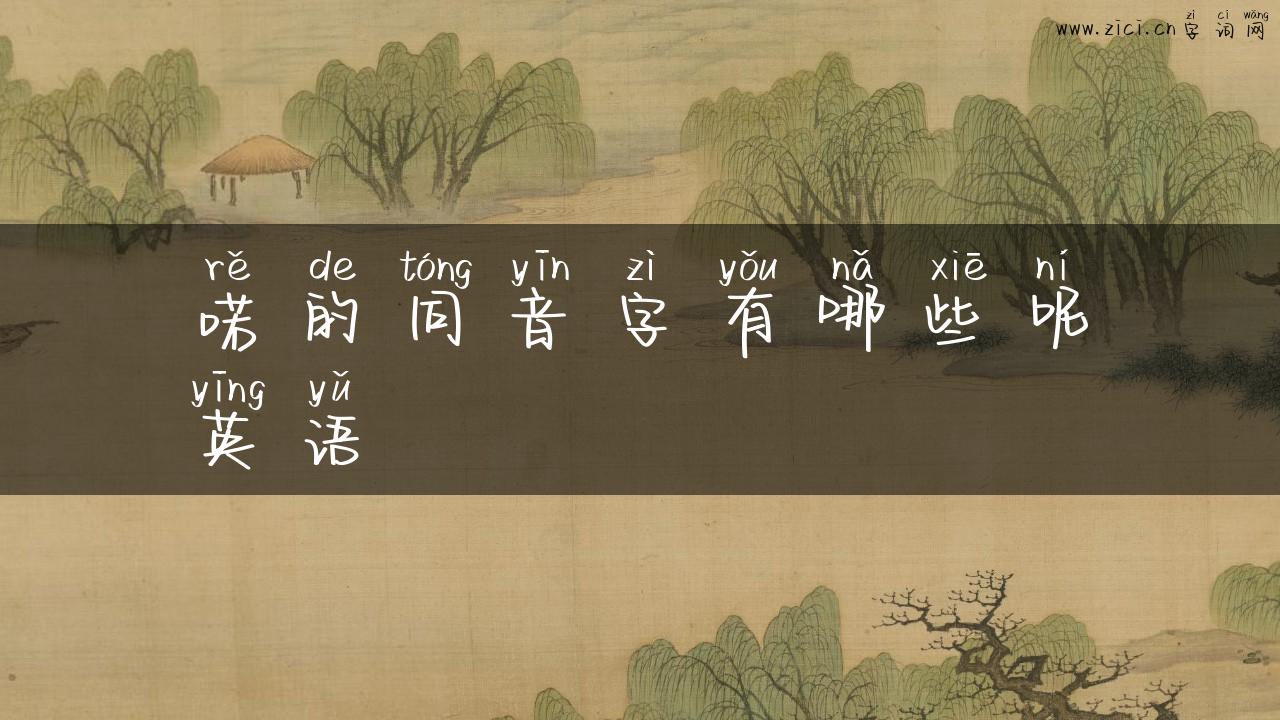 zì cí wǎng
www.zici.cn 字词网
rě de tóng yīn zì yǒu nǎ xiē ní
喏的同音字有哪些呢
yīng yǔ
英语